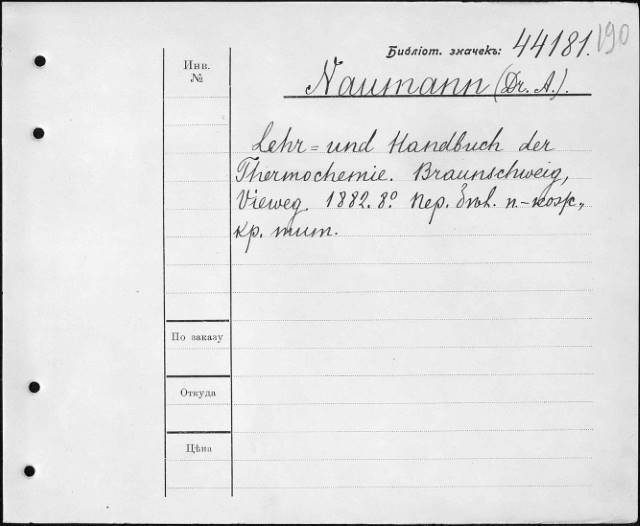 Библіот. значекъ: 44181. 190
Инв.
№
Naumann (Dr. A.).
Lehr= und Handbuch der
Thermochemie. Braunschweig,
Vieweg. 1882. 8º Пер.
кр. тит.
По заказу
Откуда
Цѣна